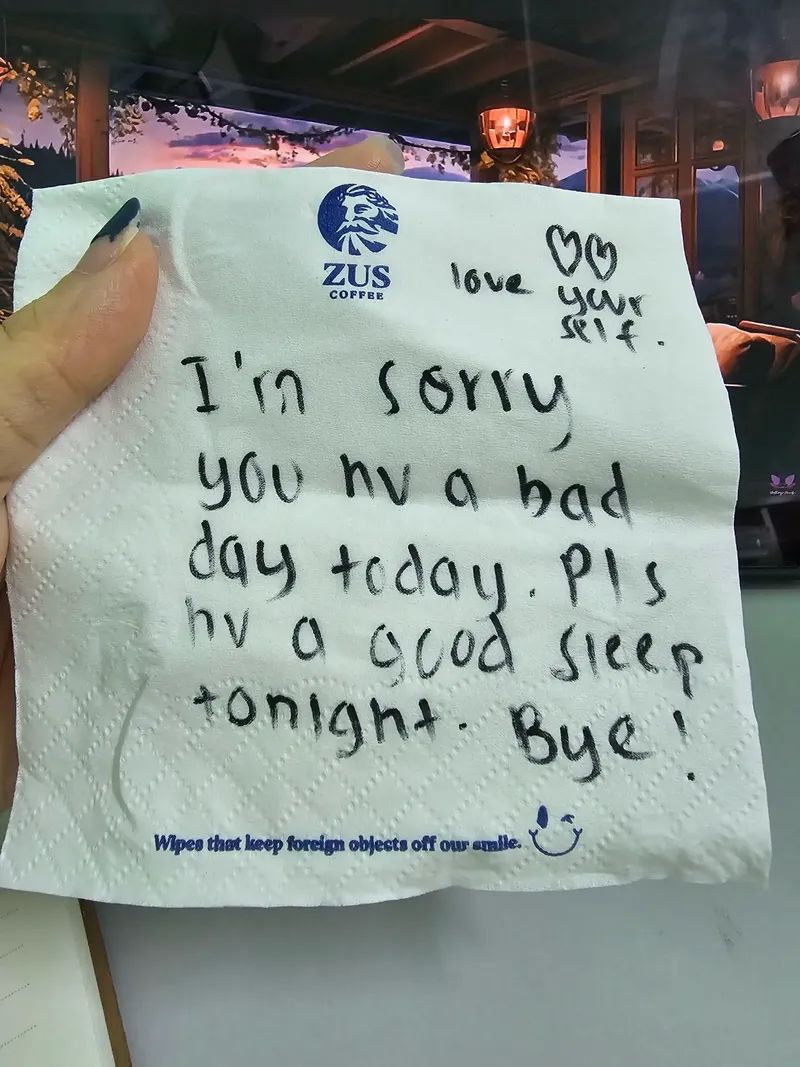 ZUS
COFFEE
love your
self.
I'm sorry
you hv a bad
day today. Pls
hv a good sleep
tonight. Bye!
Wipes that keep foreign objects off our smile.